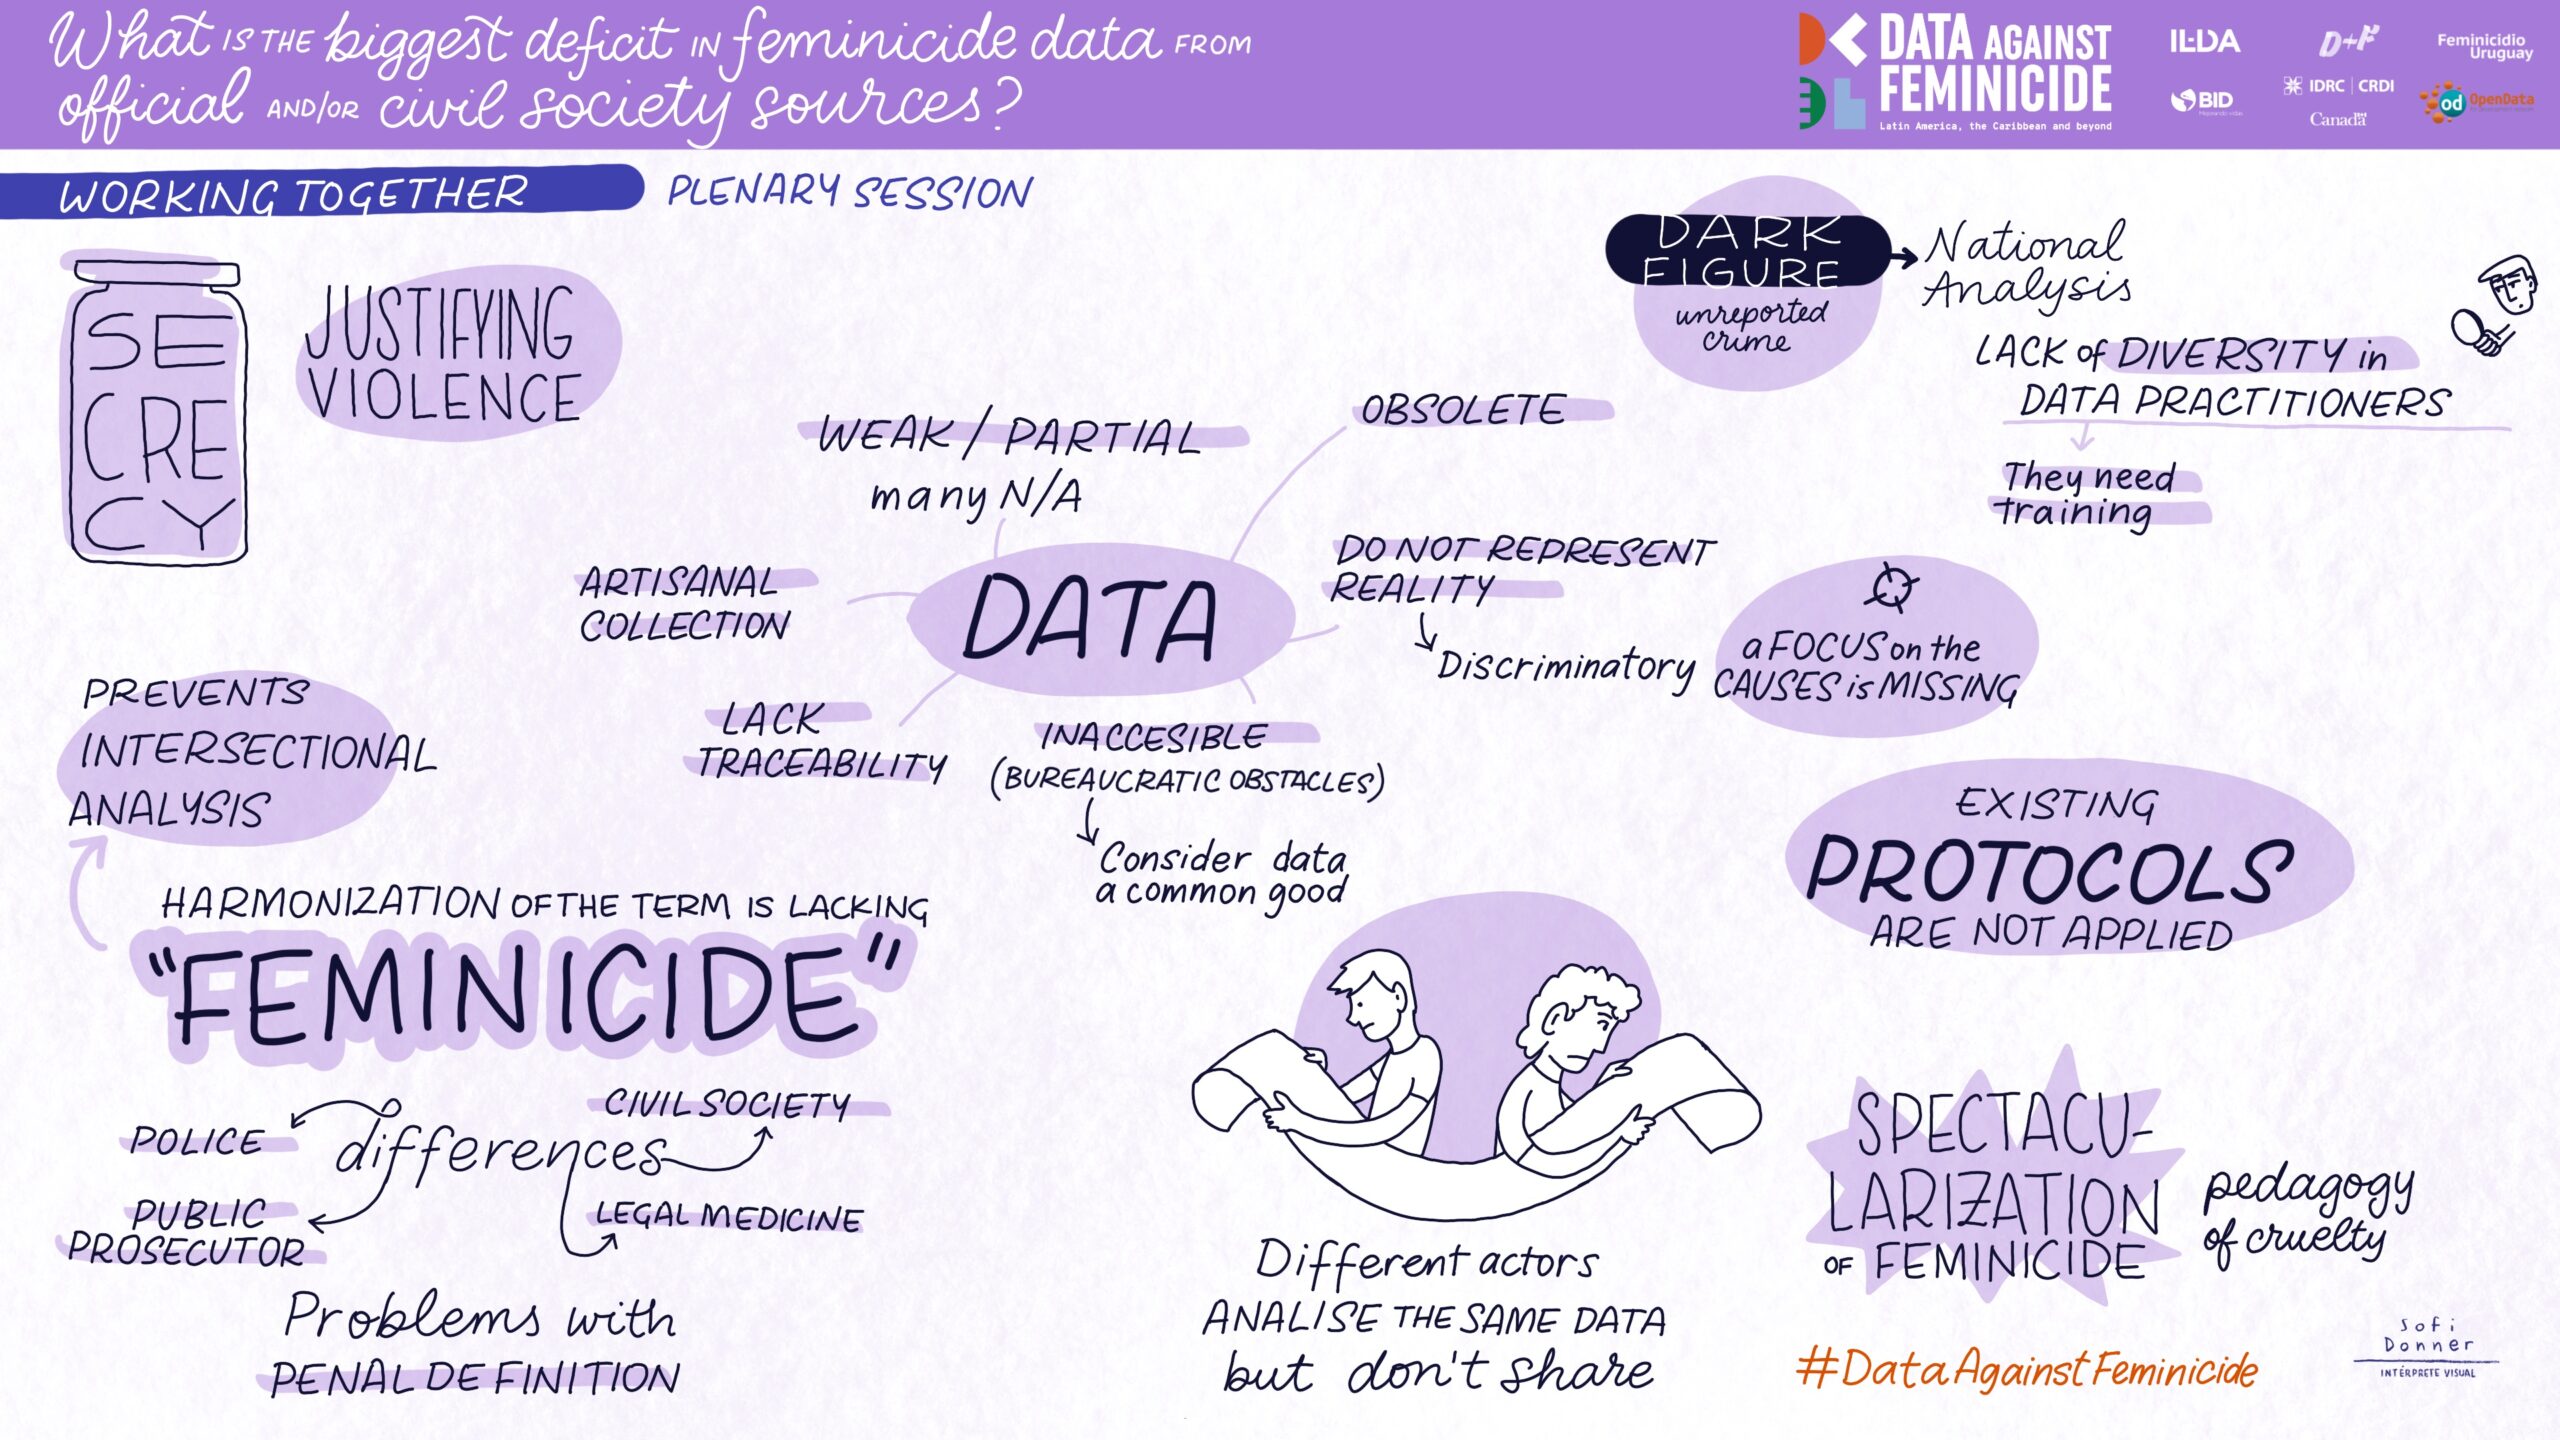 What IS THE biggest deficit IN feminicide data FROM
official AND/OR civil society sources?
DATA AGAINST
FEMINICIDE
Latin America, the Caribbean and beyond
ILDA
D+F
Feminicidio
Uruguay
BID
Mejorando vidas
IDRC | CRDI
Canada
od
OpenData
WORKING TOGETHER
PLENARY SESSION
SE
CRE
CY
JUSTIFYING
VIOLENCE
DARK
FIGURE
unreported
crime
National
Analysis
LACK of DIVERSITY in
DATA PRACTITIONERS
They need
training
WEAK / PARTIAL
many N/A
OBSOLETE
ARTISANAL
COLLECTION
DATA
DO NOT REPRESENT
REALITY
Discriminatory
a FOCUS on the
CAUSES is MISSING
LACK
TRACEABILITY
INACCESIBLE
(BUREAUCRATIC OBSTACLES)
Consider data
a common good
PREVENTS
INTERSECTIONAL
ANALYSIS
HARMONIZATION OF THE TERM IS LACKING
"FEMINICIDE"
EXISTING
PROTOCOLS
ARE NOT APPLIED
differences
POLICE
CIVIL SOCIETY
PUBLIC
PROSECUTOR
LEGAL MEDICINE
Problems with
PENAL DEFINITION
Different actors
ANALISE THE SAME DATA
but don't share
SPECTACU-
LARIZATION
OF FEMINICIDE
pedagogy
of cruelty
#DataAgainstFeminicide
Sofi
Donner
INTÉRPRETE VISUAL